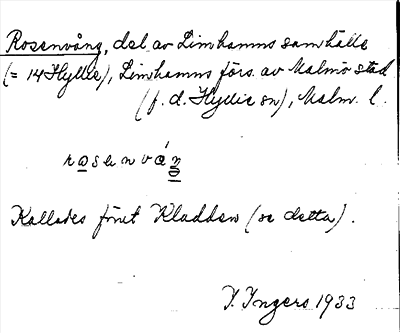 Rosenvång, del av Limhamns samhälle
(= 14 Hyllie), Limhamns förs. av Malmö stad
(f. d. Hyllie sn), Malm. l.
rosenvåŋ
Kallades förut Kladden (se detta).
I. Ingers 1933